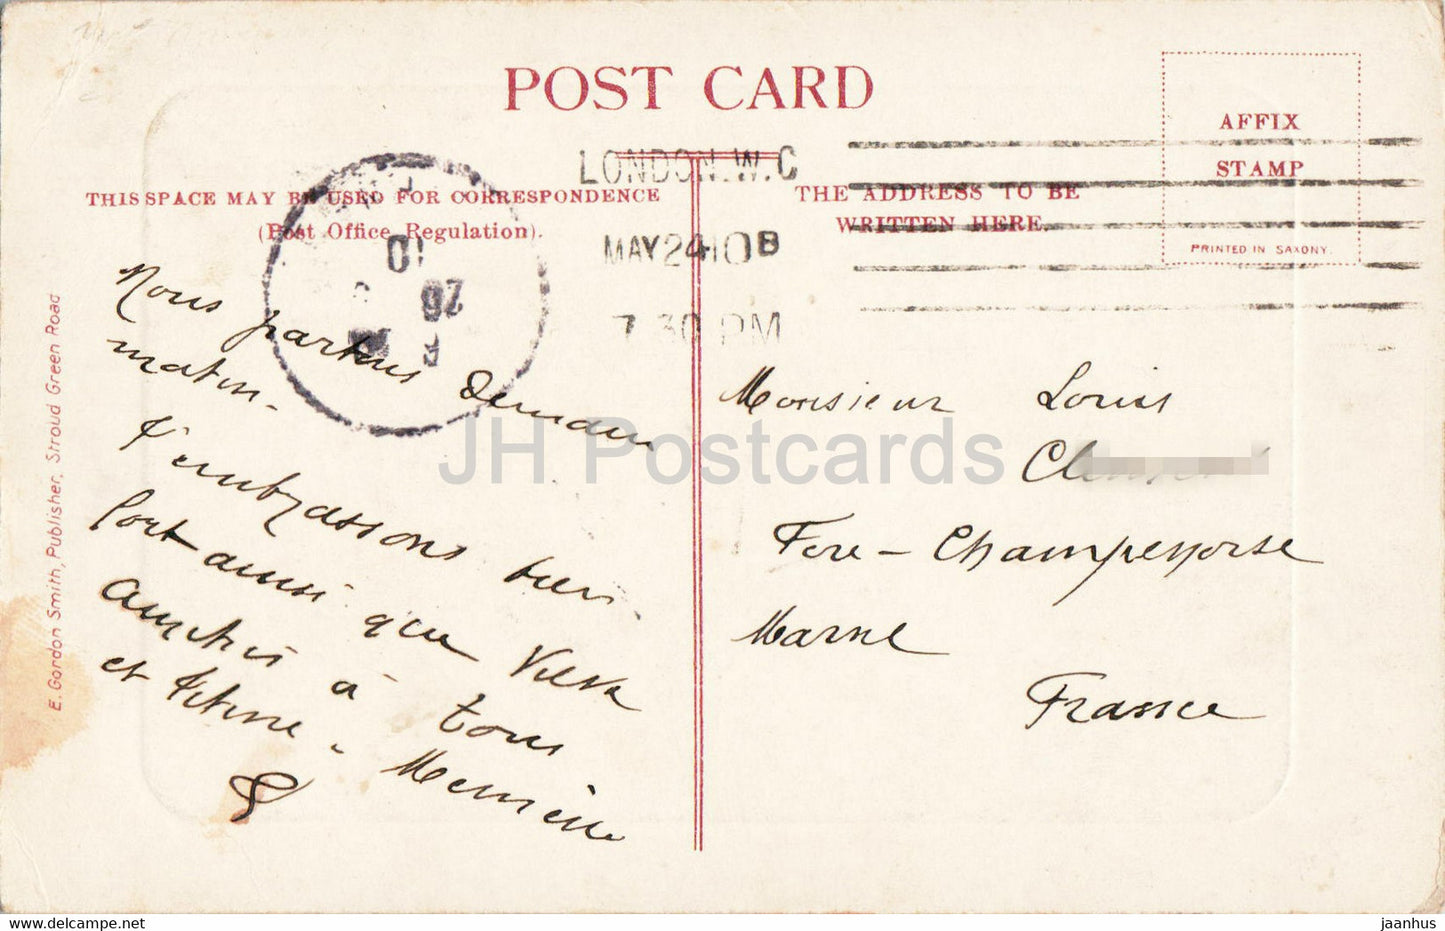 POST CARD
AFFIX
STAMP
PRINTED IN SAXONY.
LONDON. W.C
MAY 24 10 B
7.30 PM
THIS SPACE MAY BE USED FOR CORRESPONDENCE
(Post Office Regulation).
THE ADDRESS TO BE
WRITTEN HERE.
10
26
E. Gordon Smith, Publisher, Stroud Green Road
Nous partons Demain
matin.
T'embrassons bien
fort aussi que
à tous
et
Monsieur Louis
Fère-Champenoise
Marne
France
JH Postcards
https://www.delcampe.net
jaanhus